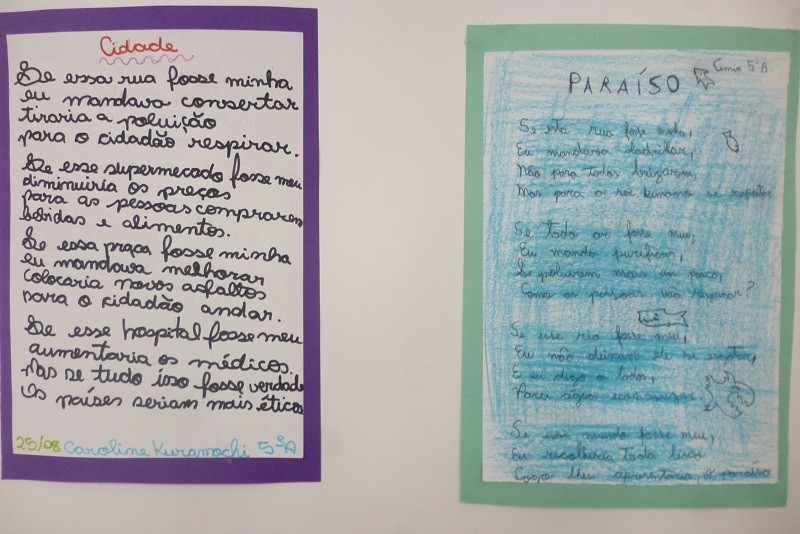 Cidade
Se essa rua fosse minha
eu mandava consertar
tiraria a poluição
para o cidadão respirar.
Se esse supermecado fosse meu
diminuiria os preços
para as pessoas comprarem
bebidas e alimentos.
Se essa praça fosse minha
eu mandava melhorar
colocaria novos asfaltos
para o cidadão andar.
Se esse hospital fosse meu
aumentaria os médicos.
Mas se tudo isso fosse verdade
Os países seriam mais éticos
25/08 Caroline Kuramochi 5ªA
5ªA
PARAÍSO
Se esta rua fosse minha,
Eu mandava ladrilhar,
Não para todos brigarem,
Mas para o ser humano se respeitar
Se todo ar fosse meu,
Eu mando purificar,
Se poluirem mais um pouco,
Como as pessoas vão respirar?
Se esse rio fosse meu,
Eu não deixava ele se esgotar,
E eu digo a todos,
Para água economizar.
Se esse mundo fosse meu,
Eu recolheria todo lixo
Logo lhes apresentaria, o paraíso